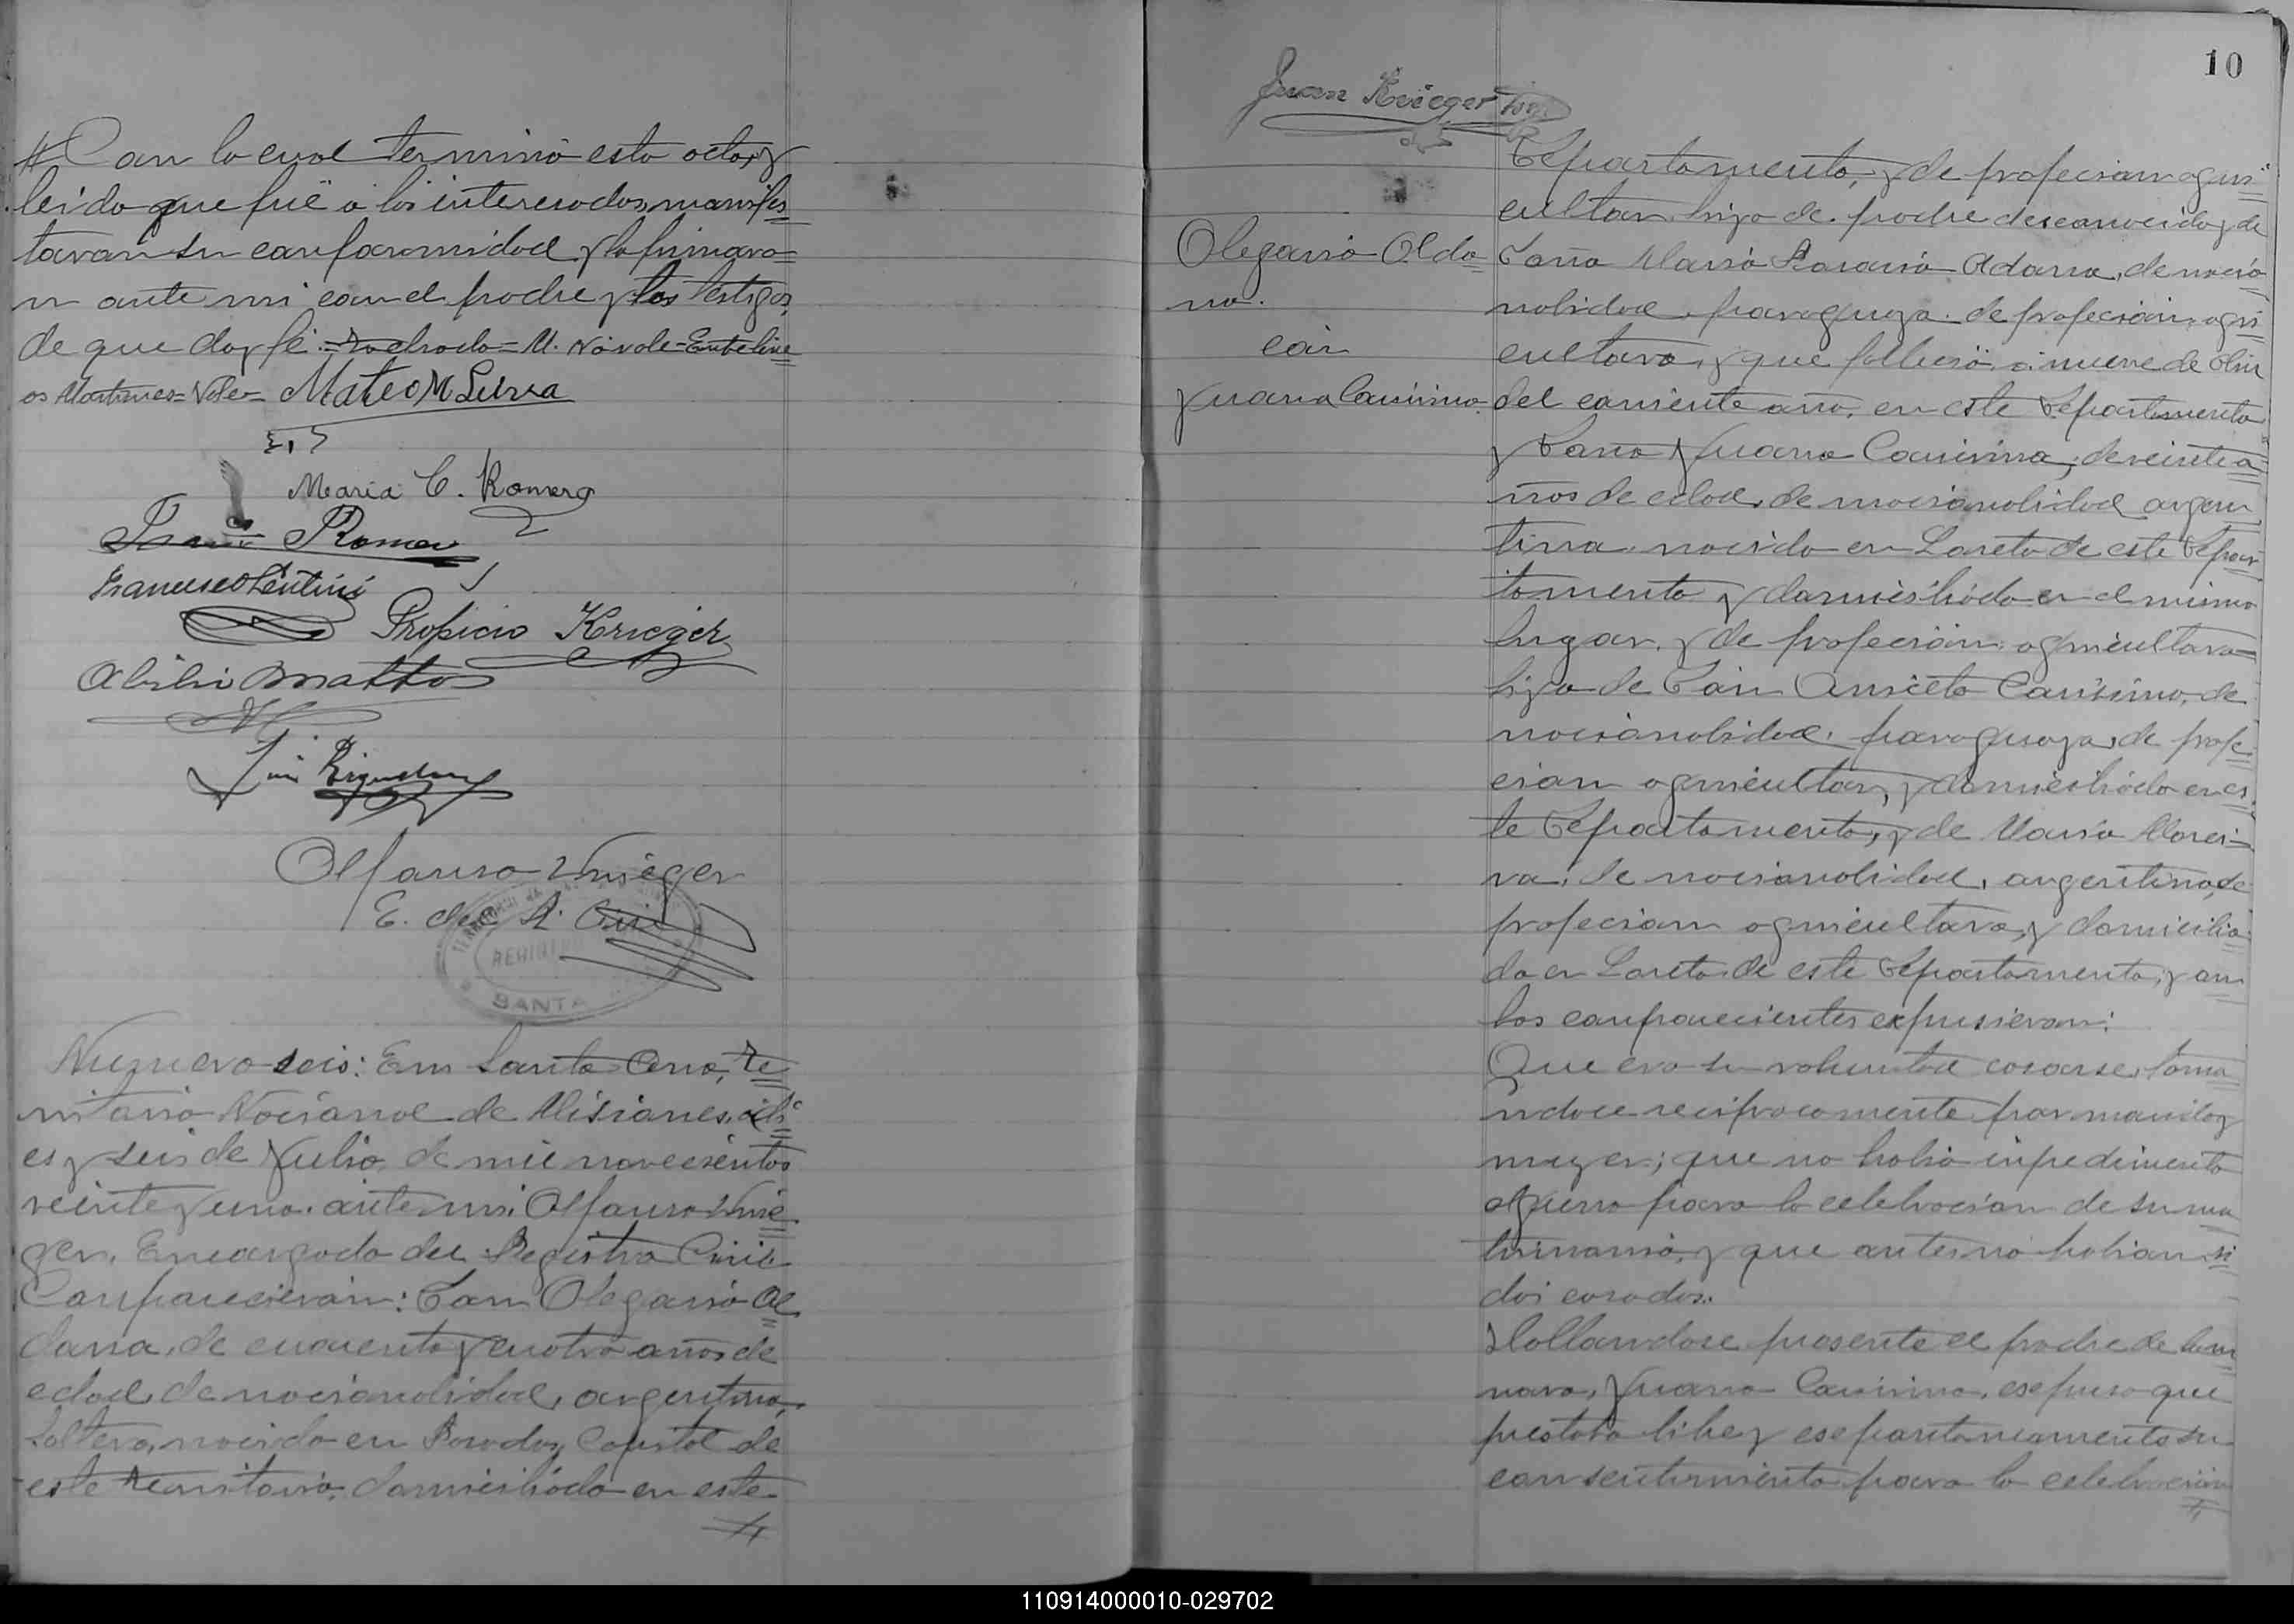 # Con lo cual terminó esta acta, y
leida que fué a los interesados, manifes=
taron su conformidad y la firmaro=
n ante mi con el padre y los testigos,
de que doy fé.= Tachado= M. No vale= Entre line
as Martines= Vale= Mateo M
Maria C. Romero
Romero
Francisco Lentini
Propicio Krieger
Abilio Mattos
Luis Riquelme
Alfonso Krieger
E. del R. Civil
REGI
SANTA
Numero seis: En Santa Ana, Te=
rritorio Nacional de Misiones, a di=
es y seis de Julio, de mil novecientos
veinte y uno. ante mi. Alfonso Krie=
ger. Encargado del Registro Civil
Comparecieron: Don Olegario Al=
dana, de cuarenta y cuatro años de
edad, de nacionalidad, argentino,
soltero, nacido en Posadas, Capital de
este Territorio, domiciliado en este
#
10
Juan Krieger
Olegario Alda=
na.
con
Juana Canisimo.
Departamento, y de profecion agri=
cultor, hijo de padre desconocido y de
Doña Maria Rosario Aldana, de nacio=
nalidad, paraguaya. de profecion, agri
cultora, y que fallició a nueve de Abril
del corriente año, en este Departamento
y Doña Juana Canisimo, de veinte a=
ños de edad, de nacionalidad argen
tina, nacida en Loreto de este Depar
tamento y domiciliada en el mismo
lugar, y de profecion agricultora=
hija de Don Aniceto Canisimo, de
nacionalidad, paraguaya, de profe=
cion agricultor, y domiciliado en es=
te Departamento, y de Maria Morei=
ra, de nacionalidad, argentina, de
profecion agricultora, y domicilia=
da en Loreto de este Departamento, y am
bos comparecientes expusieron:
Que era su voluntad casarse, toma
ndose reciprocamente por marido y
mujer; que no habia inpedimento
alguno para la celebracion de su ma
trimonio, y que antes no habian si
dos casados.
Hallandose presente el padre de la m
Juana Canisimo, expuso que
prestaba libre y espontaneamente su
consentimiento para la celebracion
#
110914000010-029702